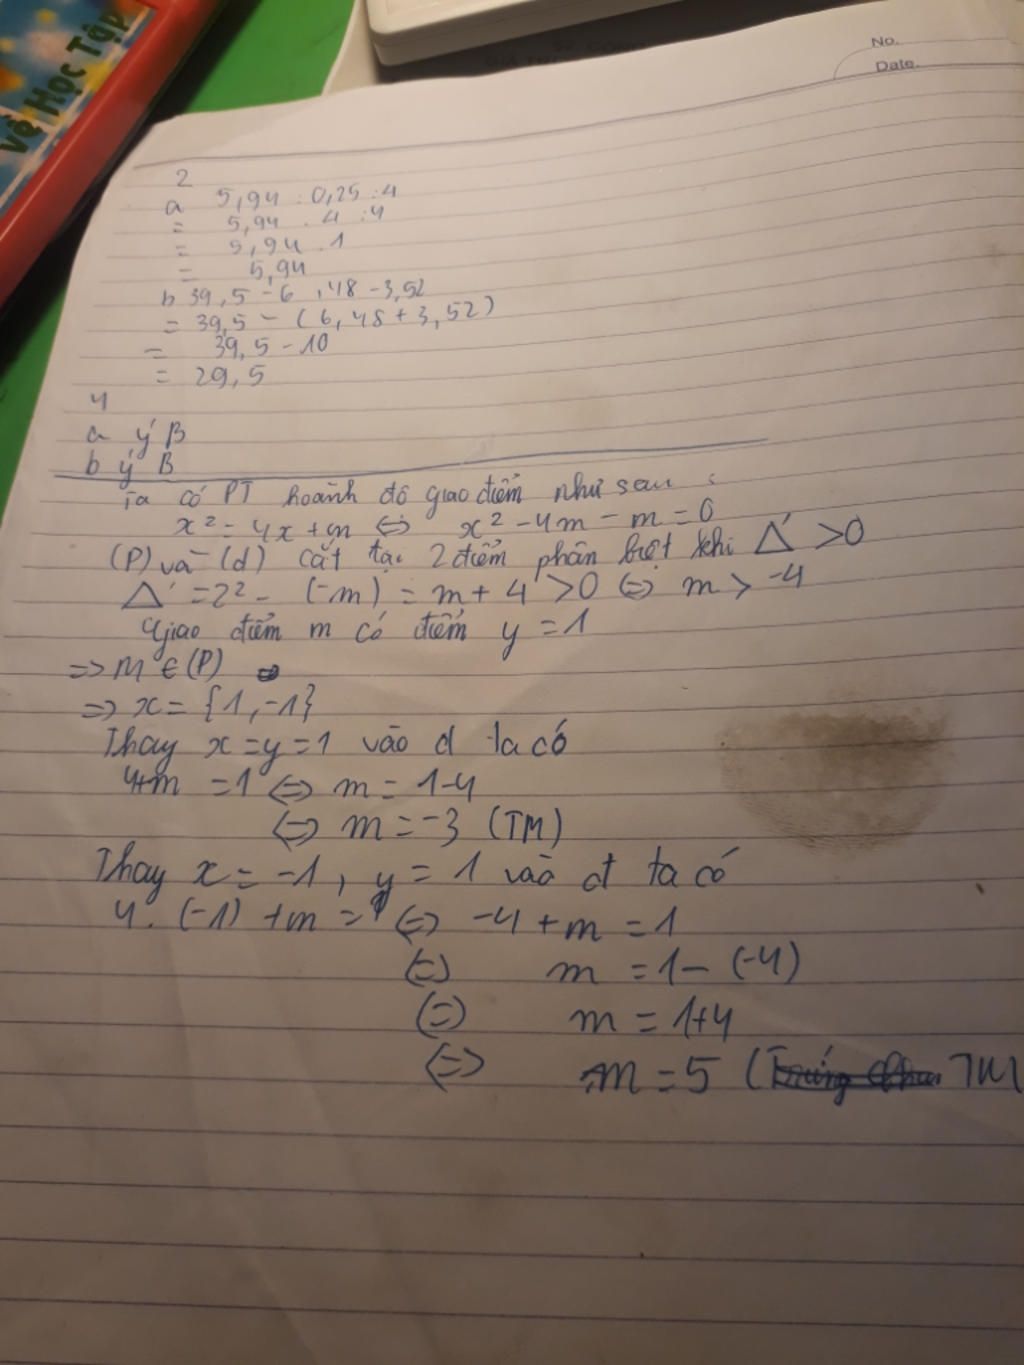 Vẽ Học Tập
No.
Date.
2
a 5,94 : 0,25 : 4
= 5,94 . 4 : 4
= 5,94 . 1
= 5,94
b 39,5 - 6,48 - 3,52
= 39,5 - (6,48 + 3,52)
= 39,5 - 10
= 29,5
4
a ý B
b ý B
Ta có PT hoành độ giao điểm như sau :
x² = 4x + m <=> x² - 4m - m = 0
(P) và (d) cắt tại 2 điểm phân biệt khi Δ' > 0
Δ' = 2² - (-m) = m + 4 > 0 <=> m > -4
Giao điểm m có điểm y = 1
=> M ∈ (P)
=> x = {1, -1}
Thay x = y = 1 vào d ta có
4+m = 1 <=> m = 1-4
<=> m = -3 (TM)
Thay x = -1, y = 1 vào d ta có
4. (-1) + m = 1 <=> -4 + m = 1
<=> m = 1 - (-4)
<=> m = 1+4
<=> m = 5 ( TM